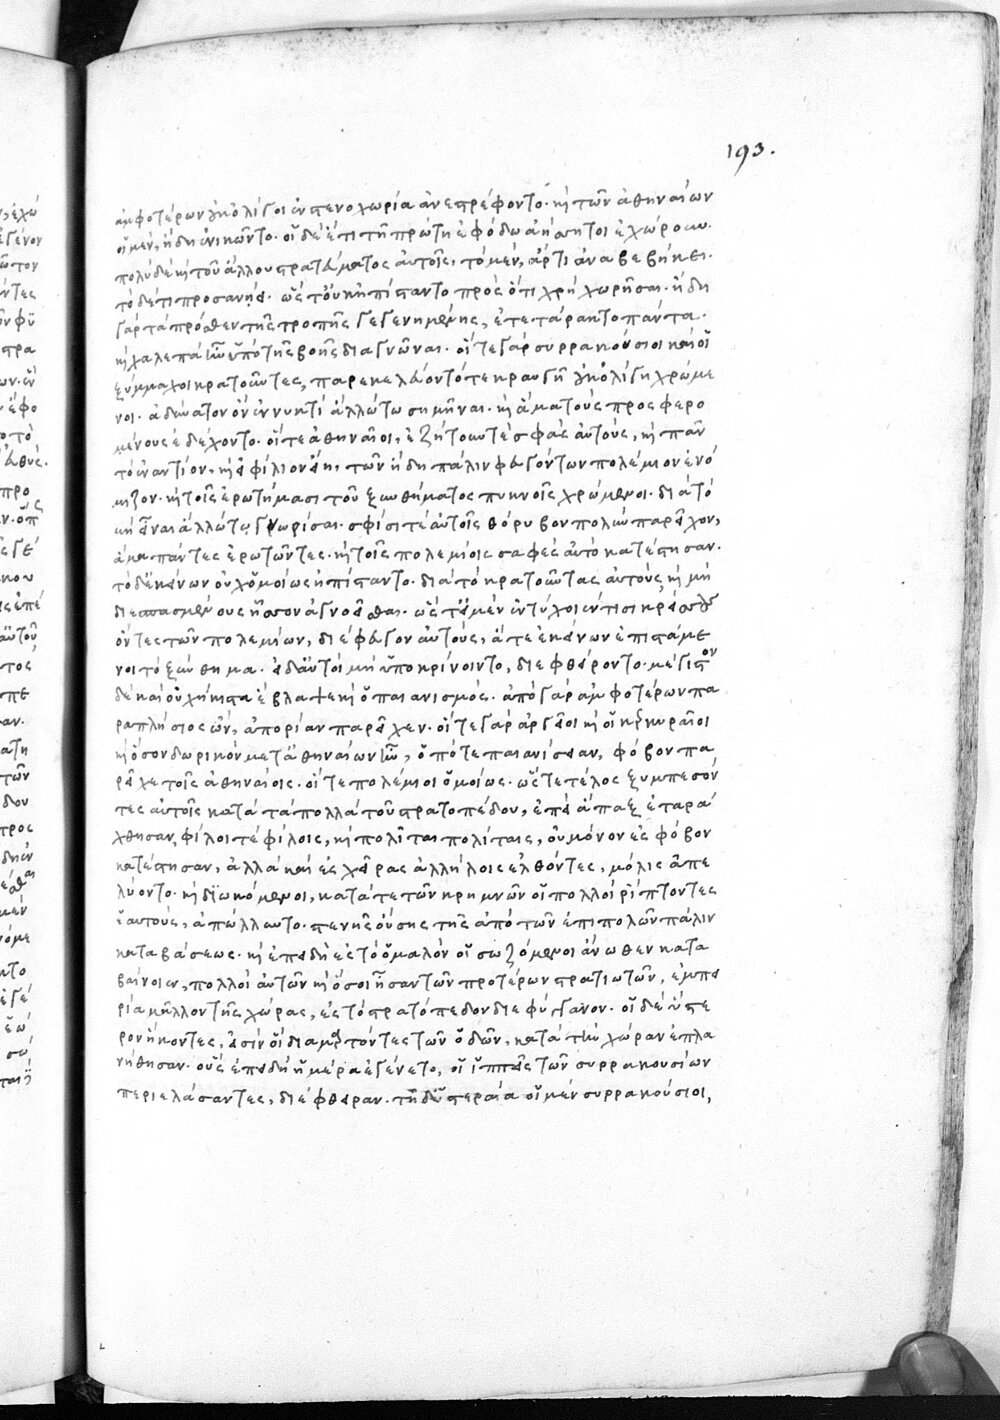 193.
ἀμφοτέρων οὐκ ὀλίγοι ἐν στενοχωρία ἀνεστρέφοντο· καὶ τῶν ἀθηναίων
οἱ μὲν, ἤδη ἐνικῶντο· οἱ δὲ ἔτι τῆ πρώτη ἐφόδω ἀήσσητοι ἐχώρουν·
πολὺ δὲ καὶ τοῦ ἄλλου στρατεύματος αὐτοῖς, τὸ μὲν, ἄρτι ἀναβεβήκει·
τὸ δέτι προσανήει· ὥς τ' οὐκ ἠπίσταντο πρὸς ὅτι χρὴ χωρῆσαι· ἤδη
γὰρ τὰ πρόσθεν τῆς τροπῆς γεγενημένης, ἐτετάρακτο πάντα·
καὶ χαλεπὰ ἦν ὑπὸ τῆς βοῆς διαγνῶναι· οἵ τε γὰρ συρρακούσιοι καὶ οἱ
ξύμμαχοι κρατοῦντες, παρεκελεύοντό τε κραυγῆ οὐκ ὀλίγη χρώμε
νοι· ἀδύνατον ὂν ἐν νυκτὶ ἄλλώ τω σημῆναι· καὶ ἅμα τοὺς προσφερο
μένους ἐδέχοντο· οἵ τε ἀθηναῖοι, ἐζήτουν τε σφᾶς αὐτοὺς, καὶ πᾶν
τὸ ἐναντίον, καὶ εἰ φίλιον εἴη, τῶν ἤδη πάλιν φευγόντων πολέμιον ἐνό
μιζον· καὶ τοῖς ἐρωτήμασι τοῦ ξυνθήματος πυκνοῖς χρώμενοι· διὰ τὸ
μὴ εἶναι ἄλλώ τω γνωρίσαι· σφίσί τε αὐτοῖς θόρυβον πολὺν παρεῖχον,
ἅμα πάντες ἐρωτῶντες· καὶ τοῖς πολεμίοις σαφὲς αὐτὸ κατέστησαν·
τὸ δ' ἐκείνων οὐχ ὁμοίως ἠπίσταντο· διὰ τὸ κρατοῦντας αὐτοὺς, καὶ μὴ
διεσπασμένους ἧσσον ἀγνοεῖσθαι· ὥς τ' εἰ μὲν ἐντύχοιέν τισι κρείσσους
ὄντες τῶν πολεμίων, διέφευγον αὐτοὺς, ἅτε ἐκείνων ἐπιστάμε
νοι τὸ ξύνθημα· εἰ δ' αὐτοὶ μὴ ὑποκρίνοιντο, διεφθείροντο· μέγιστον
δὲ καὶ οὐχήκιστα ἔβλαψε καὶ ὁ παιανισμός· ἀπὸ γὰρ ἀμφοτέρων πα
ραπλήσιος ὢν, ἀπορίαν παρεῖχεν· οἵ τε γὰρ ἀργεῖοι καὶ οἱ κερκυραῖοι
καὶ ὅσον δωρικὸν μετὰ ἀθηναίων ἦν, ὁπότε παιανίσειαν, φόβον πα
ρεῖχε τοῖς ἀθηναίοις· οἵ τε πολέμιοι ὁμοίως· ὥς τε τέλος ξυμπεσόν
τες αὐτοῖς κατὰ τὰ πολλὰ τοῦ στρατοπέδου, ἐπεὶ ἅπαξ ἐταρά
χθησαν, φίλοι τὲ φίλοις, καὶ πολῖται πολίταις, οὐ μόνον ἐς φόβον
κατέστησαν, ἀλλὰ καὶ ἐς χεῖρας ἀλλήλοις ἐλθόντες, μόλις ἀπε
λύοντο· καὶ διωκόμενοι, κατά τε τῶν κρημνῶν οἱ πολλοὶ ῥίπτοντες
ἑαυτοὺς, ἀπώλλυντο· στενῆς οὔσης τῆς ἀπὸ τῶν ἐπιπολῶν πάλιν
καταβάσεως· καὶ ἐπειδὴ ἐς τὸ ὁμαλὸν οἱ σωζόμενοι ἄνωθεν κατα
βαίνοιεν, πολλοὶ αὐτῶν καὶ ὅσοι ἦσαν τῶν προτέρων στρατιωτῶν, ἐμπει
ρία μᾶλλον τῆς χώρας, ἐς τὸ στρατόπεδον διεφύγγανον· οἱ δὲ ὕστε
ρον ἥκοντες, εἰσὶν οἳ διαμαρτόντες τῶν ὁδῶν, κατὰ τὴν χώραν ἐπλα
νήθησαν· οὓς ἐπειδὴ ἡμέρα ἐγένετο, οἱ ἱππεῖς τῶν συρρακουσίων
περιελάσαντες, διέφθειραν· τῆ δ' ὑστεραία οἱ μὲν συρρακούσιοι,